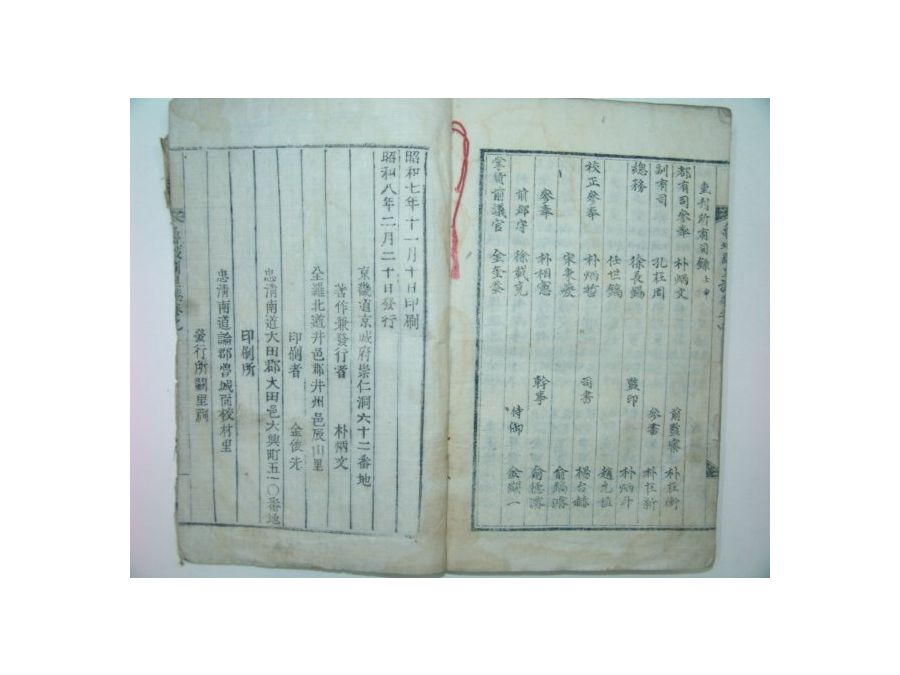 重刊所有司錄 壬申
都有司參奉 朴炳文 前監察 朴在衡
訓有司 孔在圃 參書 朴在新
總務 徐長錫 監印 朴炳斗
任世鎬 趙允植
校正參奉 朴炳哲 司書 楊台赫
宋東燮 俞鎬濬
參奉 朴相憲 幹事 俞德濬
前郡守 徐載克 待御 金顯一
掌貨前議官 金奎泰
昭和七年十一月十日印刷
昭和八年二月二十日發行
京畿道京城府崇仁洞六十二番地
著作兼發行者 朴炳文
全羅北道井邑郡井州邑辰山里
印刷者 金俊先
忠清南道大田郡大田邑大興町五一〇番地
印刷所
忠清南道論郡魯城面校村里
發行所闕里祠